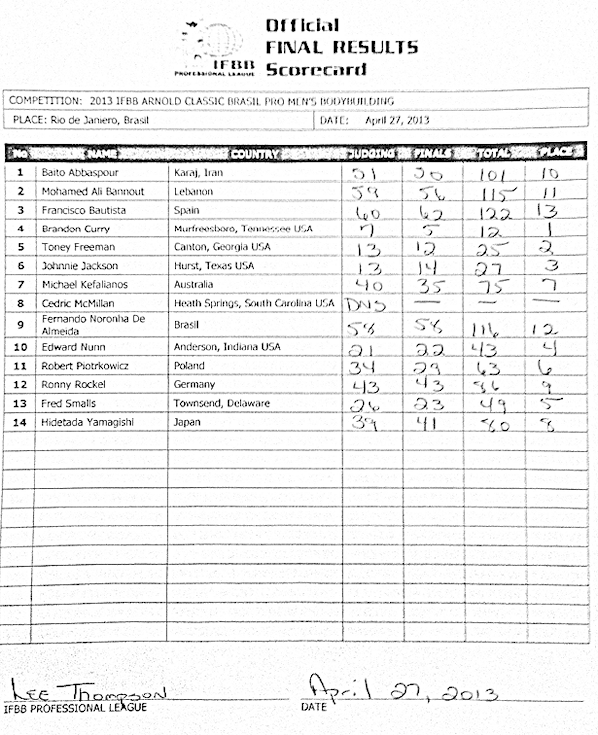 Official
FINAL RESULTS
Scorecard
IFBB
PROFESSIONAL LEAGUE
COMPETITION: 2013 IFBB ARNOLD CLASSIC BRASIL PRO MEN'S BODYBUILDING
PLACE: Rio de Janiero, Brasil DATE: April 27, 2013
NO NAME COUNTRY JUDGING FINALS TOTAL PLACE
1 Baito Abbaspour Karaj, Iran 51 50 101 10
2 Mohamed Ali Bannout Lebanon 59 56 115 11
3 Francisco Bautista Spain 60 62 122 13
4 Brandon Curry Murfreesboro, Tennessee USA 7 5 12 1
5 Toney Freeman Canton, Georgia USA 13 12 25 2
6 Johnnie Jackson Hurst, Texas USA 13 14 27 3
7 Michael Kefalianos Australia 40 35 75 7
8 Cedric McMillan Heath Springs, South Carolina USA DNS — — —
9 Fernando Noronha De
Almeida Brasil 58 58 116 12
10 Edward Nunn Anderson, Indiana USA 21 22 43 4
11 Robert Piotrkowicz Poland 34 29 63 6
12 Ronny Rockel Germany 43 43 86 9
13 Fred Smalls Townsend, Delaware 26 23 49 5
14 Hidetada Yamagishi Japan 39 41 80 8
Lee Thompson April 27, 2013
IFBB PROFESSIONAL LEAGUE DATE